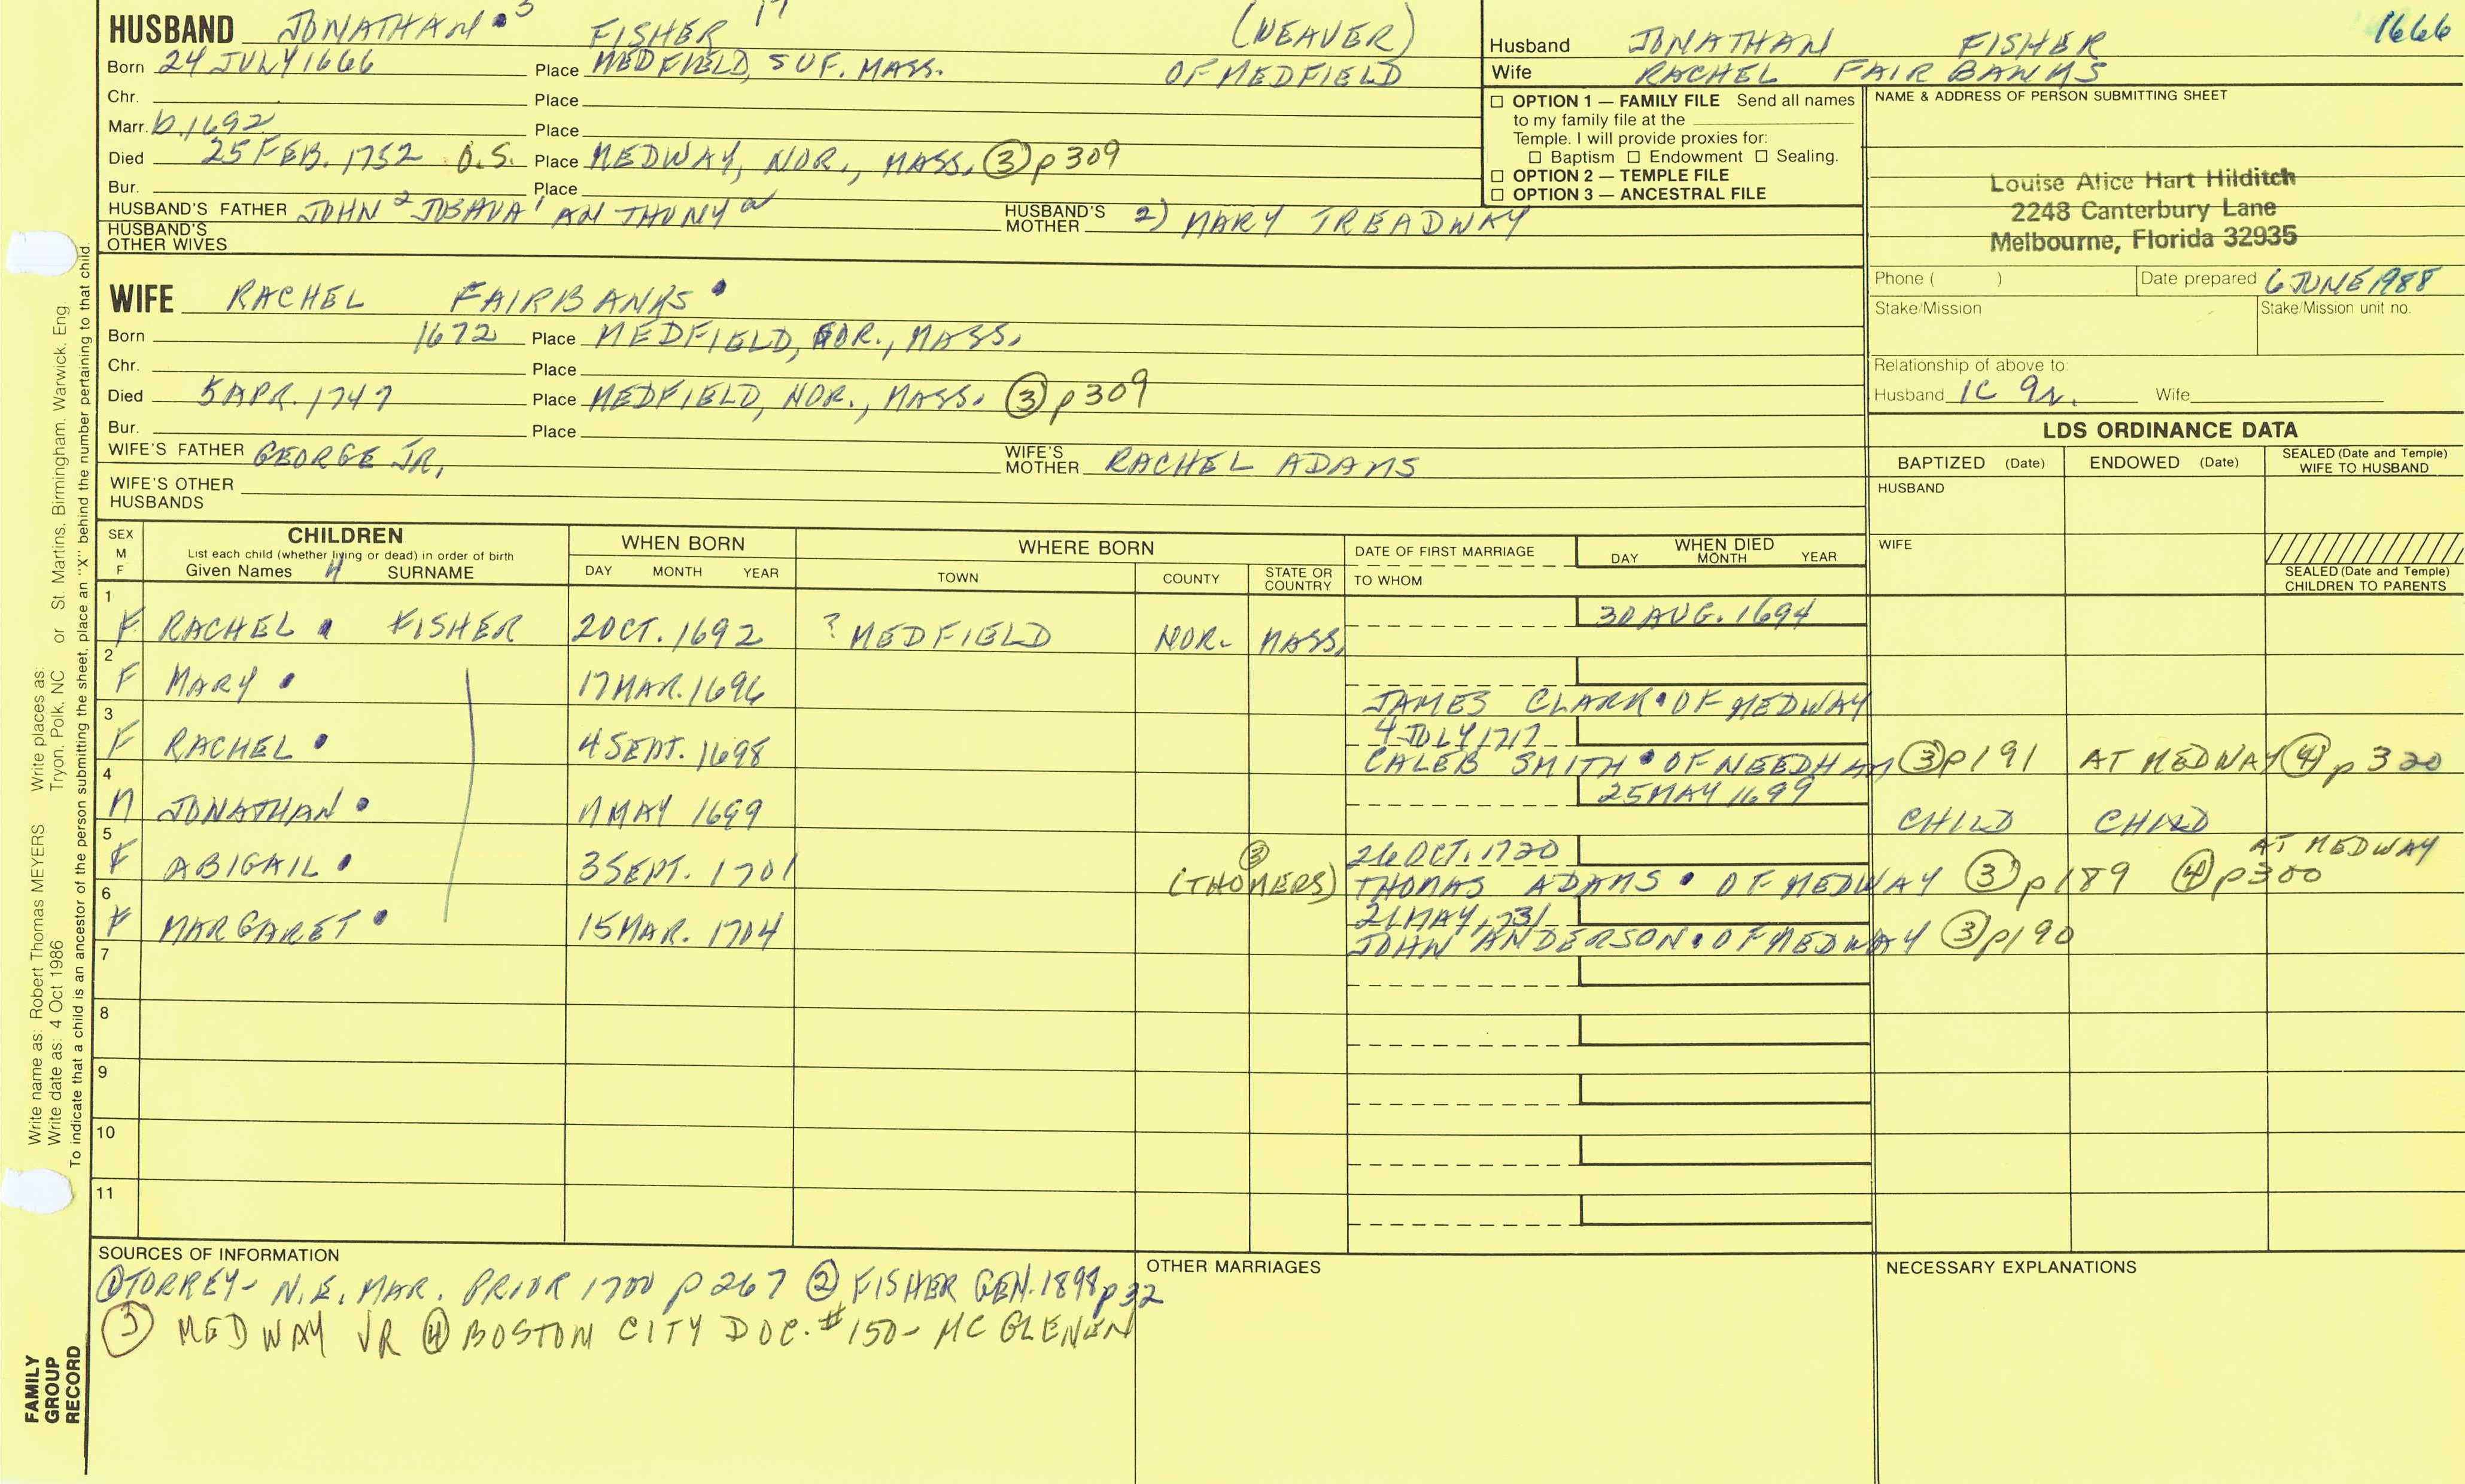 HUSBAND JONATHAN 3 FISHER 17 (WEAVER)
Born 24 JULY 1666 Place MEDFIELD, SUF. MASS. OF MEDFIELD
Chr. Place
Marr. b. 1692 Place
Died 25 FEB. 1752 O.S. Place MEDWAY, NOR., MASS. ③ p 309
Bur. Place
HUSBAND'S FATHER JOHN 2 JOSHUA 1 ANTHONY HUSBAND'S MOTHER 2) MARY TREADWAY
HUSBAND'S OTHER WIVES
Husband JONATHAN FISHER 1666
Wife RACHEL FAIRBANKS
☐ OPTION 1 — FAMILY FILE Send all names
to my family file at the
Temple. I will provide proxies for:
☐ Baptism ☐ Endowment ☐ Sealing.
☐ OPTION 2 — TEMPLE FILE
☐ OPTION 3 — ANCESTRAL FILE
NAME & ADDRESS OF PERSON SUBMITTING SHEET
Louise Alice Hart Hilditch
2248 Canterbury Lane
Melbourne, Florida 32935
Phone ( ) Date prepared 6 JUNE 1988
Stake/Mission Stake/Mission unit no.
Relationship of above to:
Husband 1C 9r. Wife
WIFE RACHEL FAIRBANKS
Born 1672 Place MEDFIELD, NOR., MASS.
Chr. Place
Died 5 APR. 1747 Place MEDFIELD, NOR., MASS. ③ p 309
Bur. Place
WIFE'S FATHER GEORGE JR. WIFE'S MOTHER RACHEL ADAMS
WIFE'S OTHER HUSBANDS
LDS ORDINANCE DATA
BAPTIZED (Date) ENDOWED (Date) SEALED (Date and Temple) WIFE TO HUSBAND
HUSBAND
WIFE
SEALED (Date and Temple) CHILDREN TO PARENTS
SEX M F
CHILDREN
List each child (whether living or dead) in order of birth
Given Names SURNAME
WHEN BORN
DAY MONTH YEAR
WHERE BORN
TOWN COUNTY STATE OR COUNTRY
DATE OF FIRST MARRIAGE
TO WHOM
WHEN DIED
DAY MONTH YEAR
1 F RACHEL FISHER 2 OCT. 1692 ? MEDFIELD NOR. MASS. 30 AUG. 1694
2 F MARY 17 MAR. 1696 JAMES CLARK OF MEDWAY
3 F RACHEL 4 SEPT. 1698 4 JULY 1717 CALEB SMITH OF NEEDHAM ③ p 191 AT MEDWAY ④ p 320
4 M JONATHAN 11 MAY 1699 25 MAY 1699 CHILD CHILD
5 F ABIGAIL 3 SEPT. 1701 ③ (THOMERS) 26 OCT. 1720 THOMAS ADAMS OF MEDWAY ③ p 189 ④ p 300 AT MEDWAY
6 F MARGARET 15 MAR. 1704 21 MAY 1731 JOHN ANDERSON OF MEDWAY ③ p 190
7
8
9
10
11
SOURCES OF INFORMATION
① TORREY - N.E. MAR. PRIOR 1700 p 267 ② FISHER GEN. 1898 p 32
③ MEDWAY VR ④ BOSTON CITY DOC. # 150 - MC GLENEN
OTHER MARRIAGES
NECESSARY EXPLANATIONS
Write name as: Robert Thomas MEYERS Write places as: Tryon, Polk, NC or St. Martins, Birmingham, Warwick, Eng.
Write date as: 4 Oct 1986
To indicate that a child is an ancestor of the person submitting the sheet, place an "X" behind the number pertaining to that child.
FAMILY
GROUP
RECORD